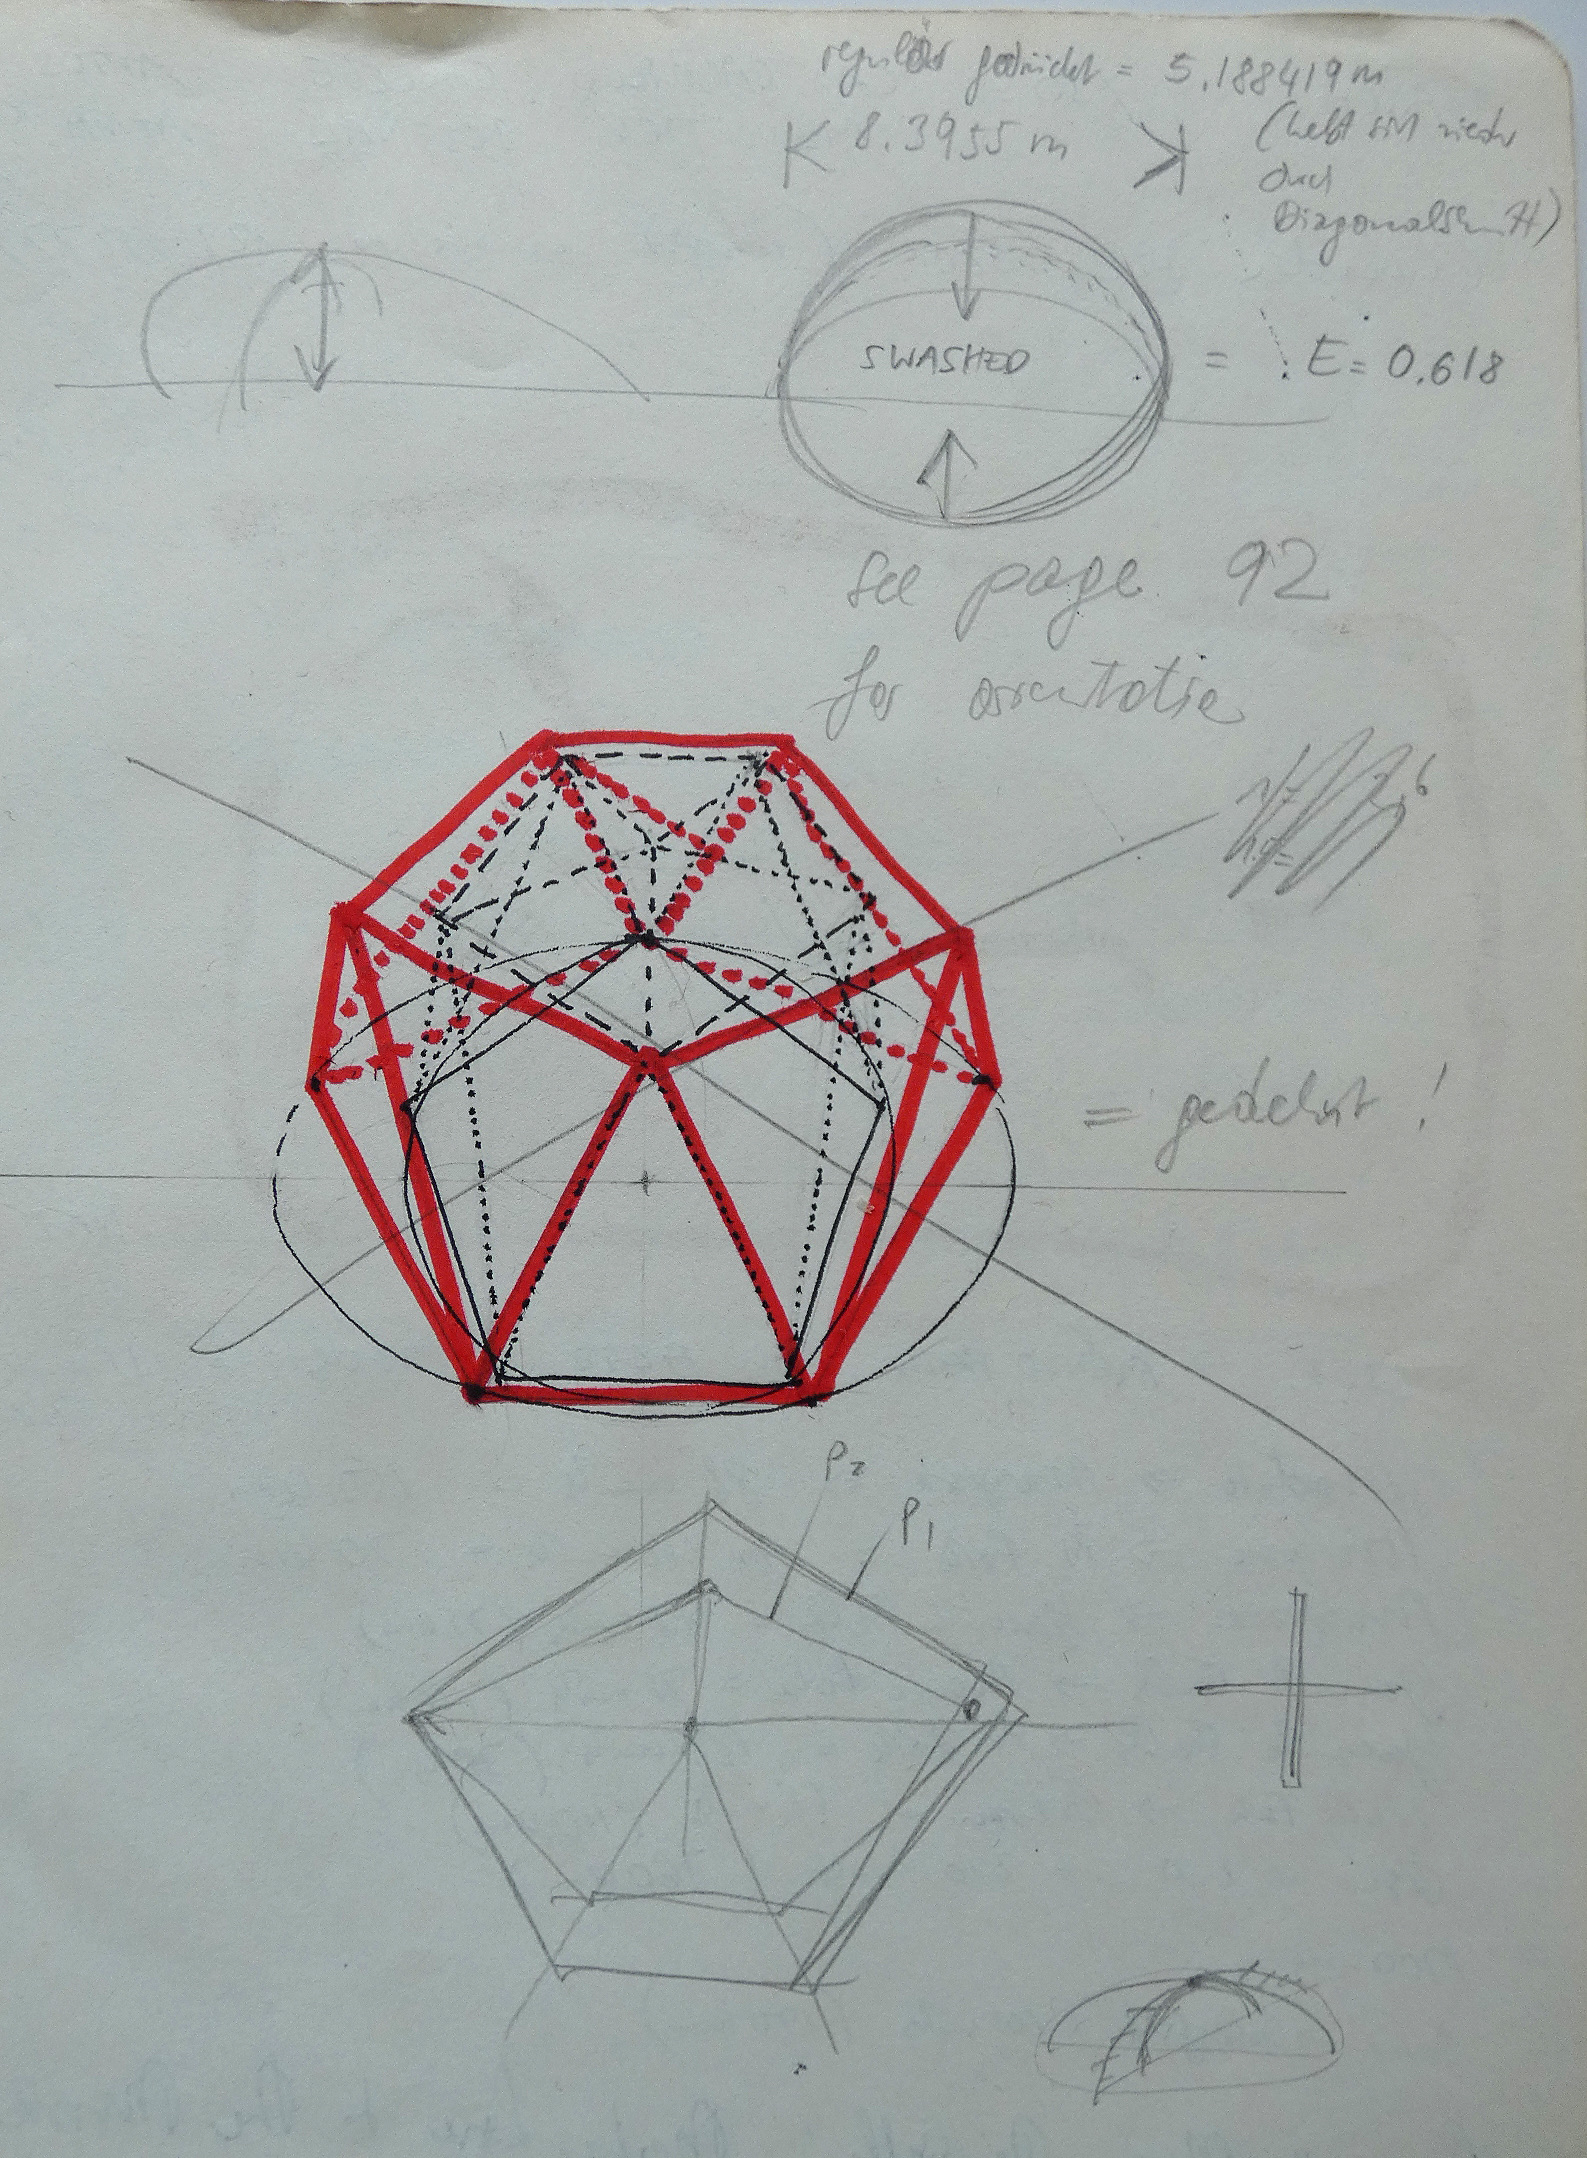 regulär gedrückt = 5.188419 m
8.3955 m
(hebt sich wieder
durch
Diagonalschnitt)
SWASHED
= E = 0.618
See page 92
for orientatie
P2
P1